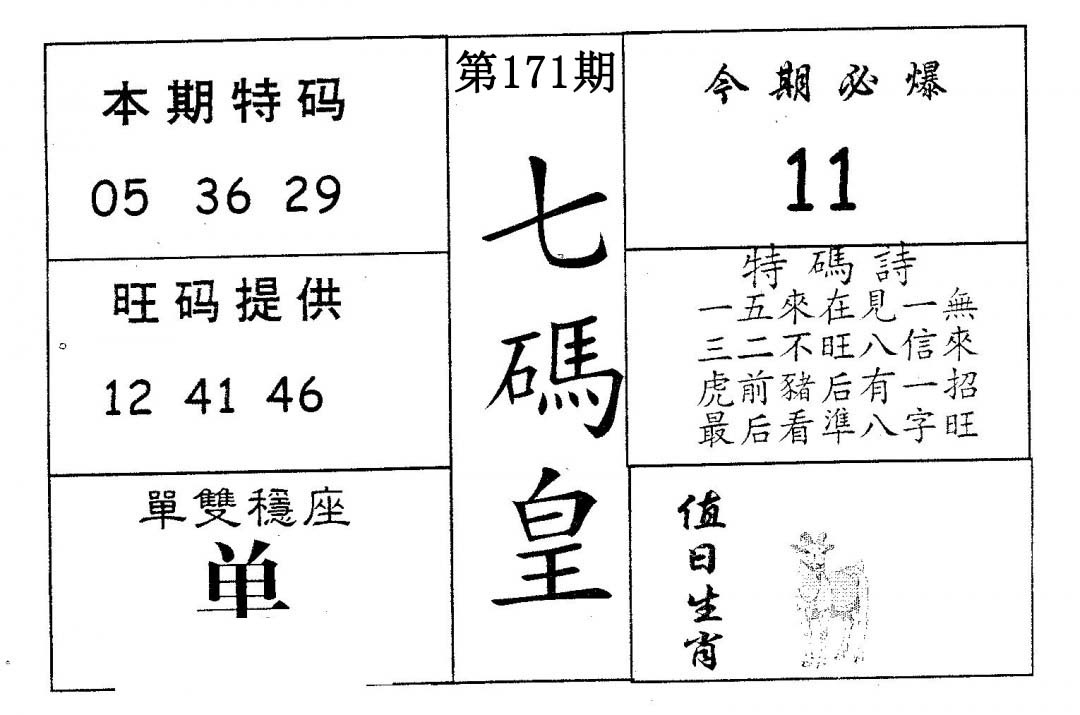 本期特码
05 36 29
旺码提供
12 41 46
單雙穩座
单
第171期
七碼皇
今期必爆
11
特碼詩
一五來在見一無
三二不旺八信來
虎前豬后有一招
最后看準八字旺
值日生肖